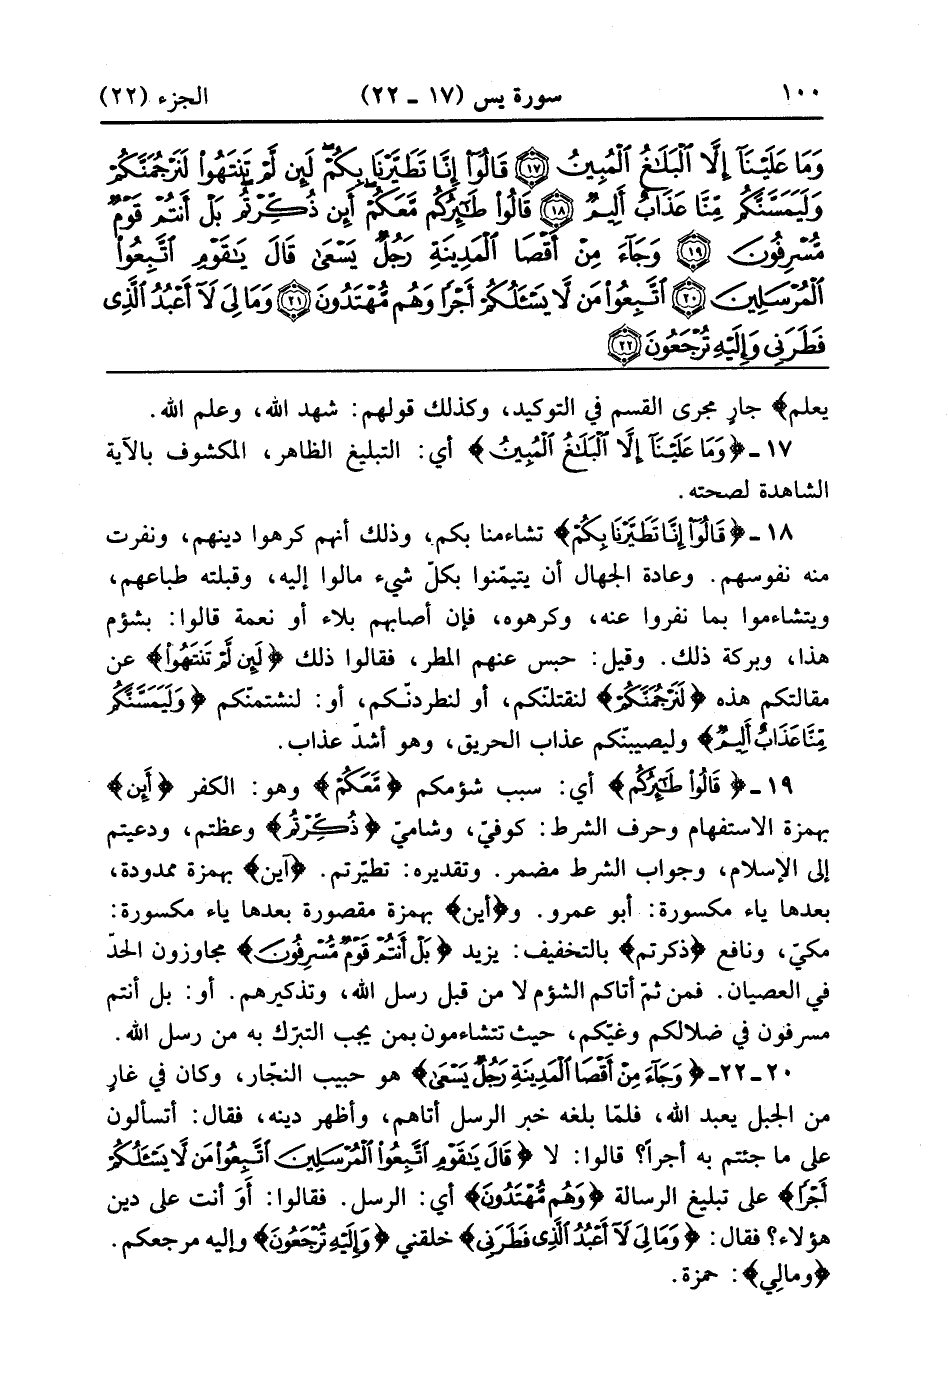 ١٠٠ سورة يس (١٧ ـ ٢٢) الجزء (٢٢)
وَمَا عَلَيْنَآ إِلَّا ٱلْبَلَٰغُ ٱلْمُبِينُ ١٧ قَالُوٓا۟ إِنَّا تَطَيَّرْنَا بِكُمْ لَئِن لَّمْ تَنتَهُوا۟ لَنَرْجُمَنَّكُمْ
وَلَيَمَسَّنَّكُم مِّنَّا عَذَابٌ أَلِيمٌ ١٨ قَالُوا۟ طَٰٓئِرُكُم مَّعَكُمْ أَئِن ذُكِّرْتُم بَلْ أَنتُمْ قَوْمٌ
مُّسْرِفُونَ ١٩ وَجَآءَ مِنْ أَقْصَا ٱلْمَدِينَةِ رَجُلٌ يَسْعَىٰ قَالَ يَٰقَوْمِ ٱتَّبِعُوا۟
ٱلْمُرْسَلِينَ ٢٠ ٱتَّبِعُوا۟ مَن لَّا يَسْـَٔلُكُمْ أَجْرًا وَهُم مُّهْتَدُونَ ٢١ وَمَا لِىَ لَآ أَعْبُدُ ٱلَّذِى
فَطَرَنِى وَإِلَيْهِ تُرْجَعُونَ ٢٢
يعلم﴾ جارٍ مجرى القسم في التوكيد، وكذلك قولهم: شهد الله، وعلم الله.
١٧ ـ ﴿وَمَا عَلَيْنَآ إِلَّا ٱلْبَلَٰغُ ٱلْمُبِينُ﴾ أي: التبليغ الظاهر، المكشوف بالآية
الشاهدة لصحته.
١٨ ـ ﴿قَالُوٓا۟ إِنَّا تَطَيَّرْنَا بِكُمْ﴾ تشاءمنا بكم، وذلك أنهم كرهوا دينهم، ونفرت
منه نفوسهم. وعادة الجهال أن يتيمّنوا بكلّ شيء مالوا إليه، وقبلته طباعهم،
ويتشاءموا بما نفروا عنه، وكرهوه، فإن أصابهم بلاء أو نعمة قالوا: بشؤم
هذا، وبركة ذلك. وقيل: حبس عنهم المطر، فقالوا ذلك ﴿لَئِن لَّمْ تَنتَهُوا۟﴾ عن
مقالتكم هذه ﴿لَنَرْجُمَنَّكُمْ﴾ لنقتلنّكم، أو لنطردنّكم، أو: لنشتمنّكم ﴿وَلَيَمَسَّنَّكُم
مِّنَّا عَذَابٌ أَلِيمٌ﴾ وليصيبنّكم عذاب الحريق، وهو أشدّ عذاب.
١٩ ـ ﴿قَالُوا۟ طَٰٓئِرُكُم﴾ أي: سبب شؤمكم ﴿مَّعَكُمْ﴾ وهو: الكفر ﴿أَئِن﴾
بهمزة الاستفهام وحرف الشرط: كوفيّ، وشاميّ ﴿ذُكِّرْتُم﴾ وعظتم، ودعيتم
إلى الإسلام، وجواب الشرط مضمر. وتقديره: تطيّرتم. ﴿آين﴾ بهمزة ممدودة،
بعدها ياء مكسورة: أبو عمرو. و﴿أين﴾ بهمزة مقصورة بعدها ياء مكسورة:
مكيّ، ونافع ﴿ذكرتم﴾ بالتخفيف: يزيد ﴿بَلْ أَنتُمْ قَوْمٌ مُّسْرِفُونَ﴾ مجاوزون الحدّ
في العصيان. فمن ثمّ أتاكم الشؤم لا من قبل رسل الله، وتذكيرهم. أو: بل أنتم
مسرفون في ضلالكم وغيّكم، حيث تتشاءمون بمن يجب التبرّك به من رسل الله.
٢٠ ـ ٢٢ ـ ﴿وَجَآءَ مِنْ أَقْصَا ٱلْمَدِينَةِ رَجُلٌ يَسْعَىٰ﴾ هو حبيب النجّار، وكان في غارٍ
من الجبل يعبد الله، فلمّا بلغه خبر الرسل أتاهم، وأظهر دينه، فقال: أتسألون
على ما جئتم به أجراً؟ قالوا: لا ﴿قَالَ يَٰقَوْمِ ٱتَّبِعُوا۟ ٱلْمُرْسَلِينَ ٱتَّبِعُوا۟ مَن لَّا يَسْـَٔلُكُمْ
أَجْرًا﴾ على تبليغ الرسالة ﴿وَهُم مُّهْتَدُونَ﴾ أي: الرسل. فقالوا: أَوَ أنت على دين
هؤلاء؟ فقال: ﴿وَمَا لِىَ لَآ أَعْبُدُ ٱلَّذِى فَطَرَنِى﴾ خلقني ﴿وَإِلَيْهِ تُرْجَعُونَ﴾ وإليه مرجعكم.
﴿ومالِي﴾: حمزة.